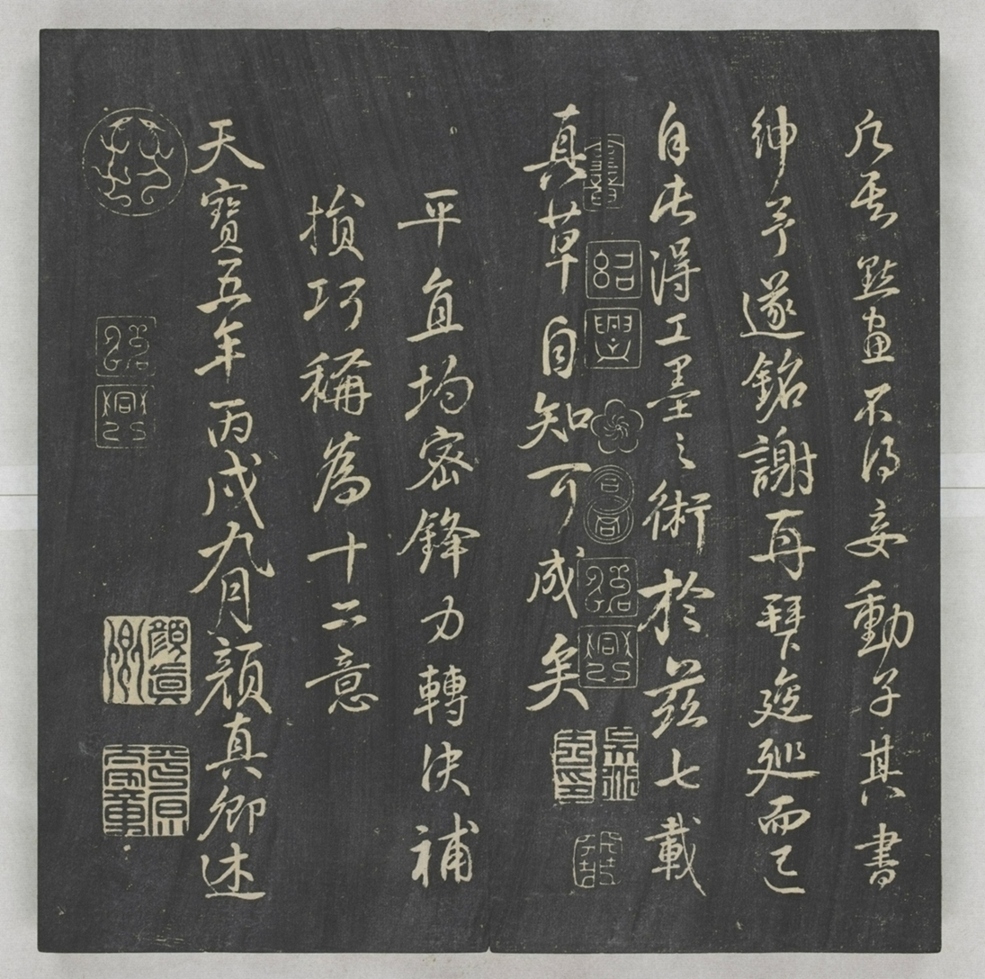 點畫不得妄動子其書
紳予遂銘謝再拜逡巡而已
自此得工墨之術於茲七載
真草自知可成矣
平直均密鋒力轉決補
損巧稱為十二意
天寶五年丙戌九月顏真卿述
紹興
紹興
紹興
顏真卿